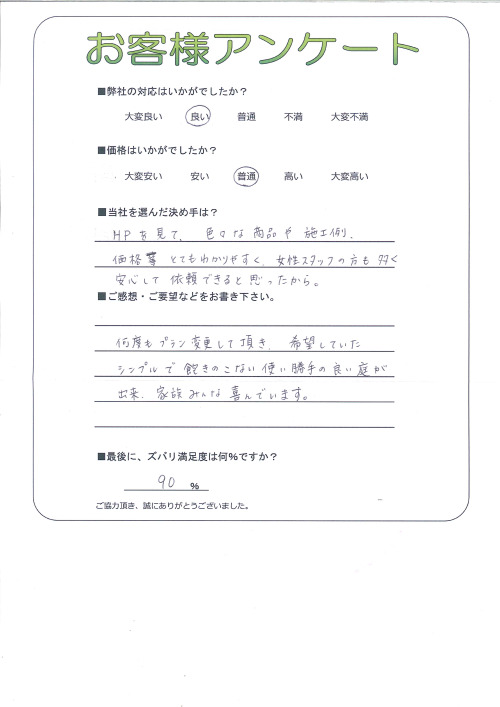 お客様アンケート
■弊社の対応はいかがでしたか？
大変良い 良い 普通 不満 大変不満
■価格はいかがでしたか？
大変安い 安い 普通 高い 大変高い
■当社を選んだ決め手は？
HPを見て、色々な商品や施工例、
価格等とてもわかりやすく、女性スタッフの方も多く
安心して依頼できると思ったから。
■ご感想・ご要望などをお書き下さい。
何度もプラン変更して頂き、希望していた
シンプルで飽きのこない使い勝手の良い庭が
出来、家族みんな喜んでいます。
■最後に、ズバリ満足度は何％ですか？
90 ％
ご協力頂き、誠にありがとうございました。